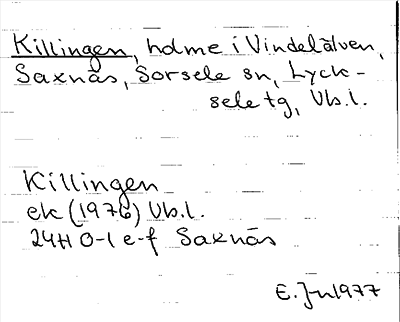 Killingen, holme i Vindelälven,
Saxnäs, Sorsele sn, Lyck-
sele tg, Vb.l.
Killingen
ek (1976) Vb.l.
24H 0-1 e-f Saxnäs
E. 1977